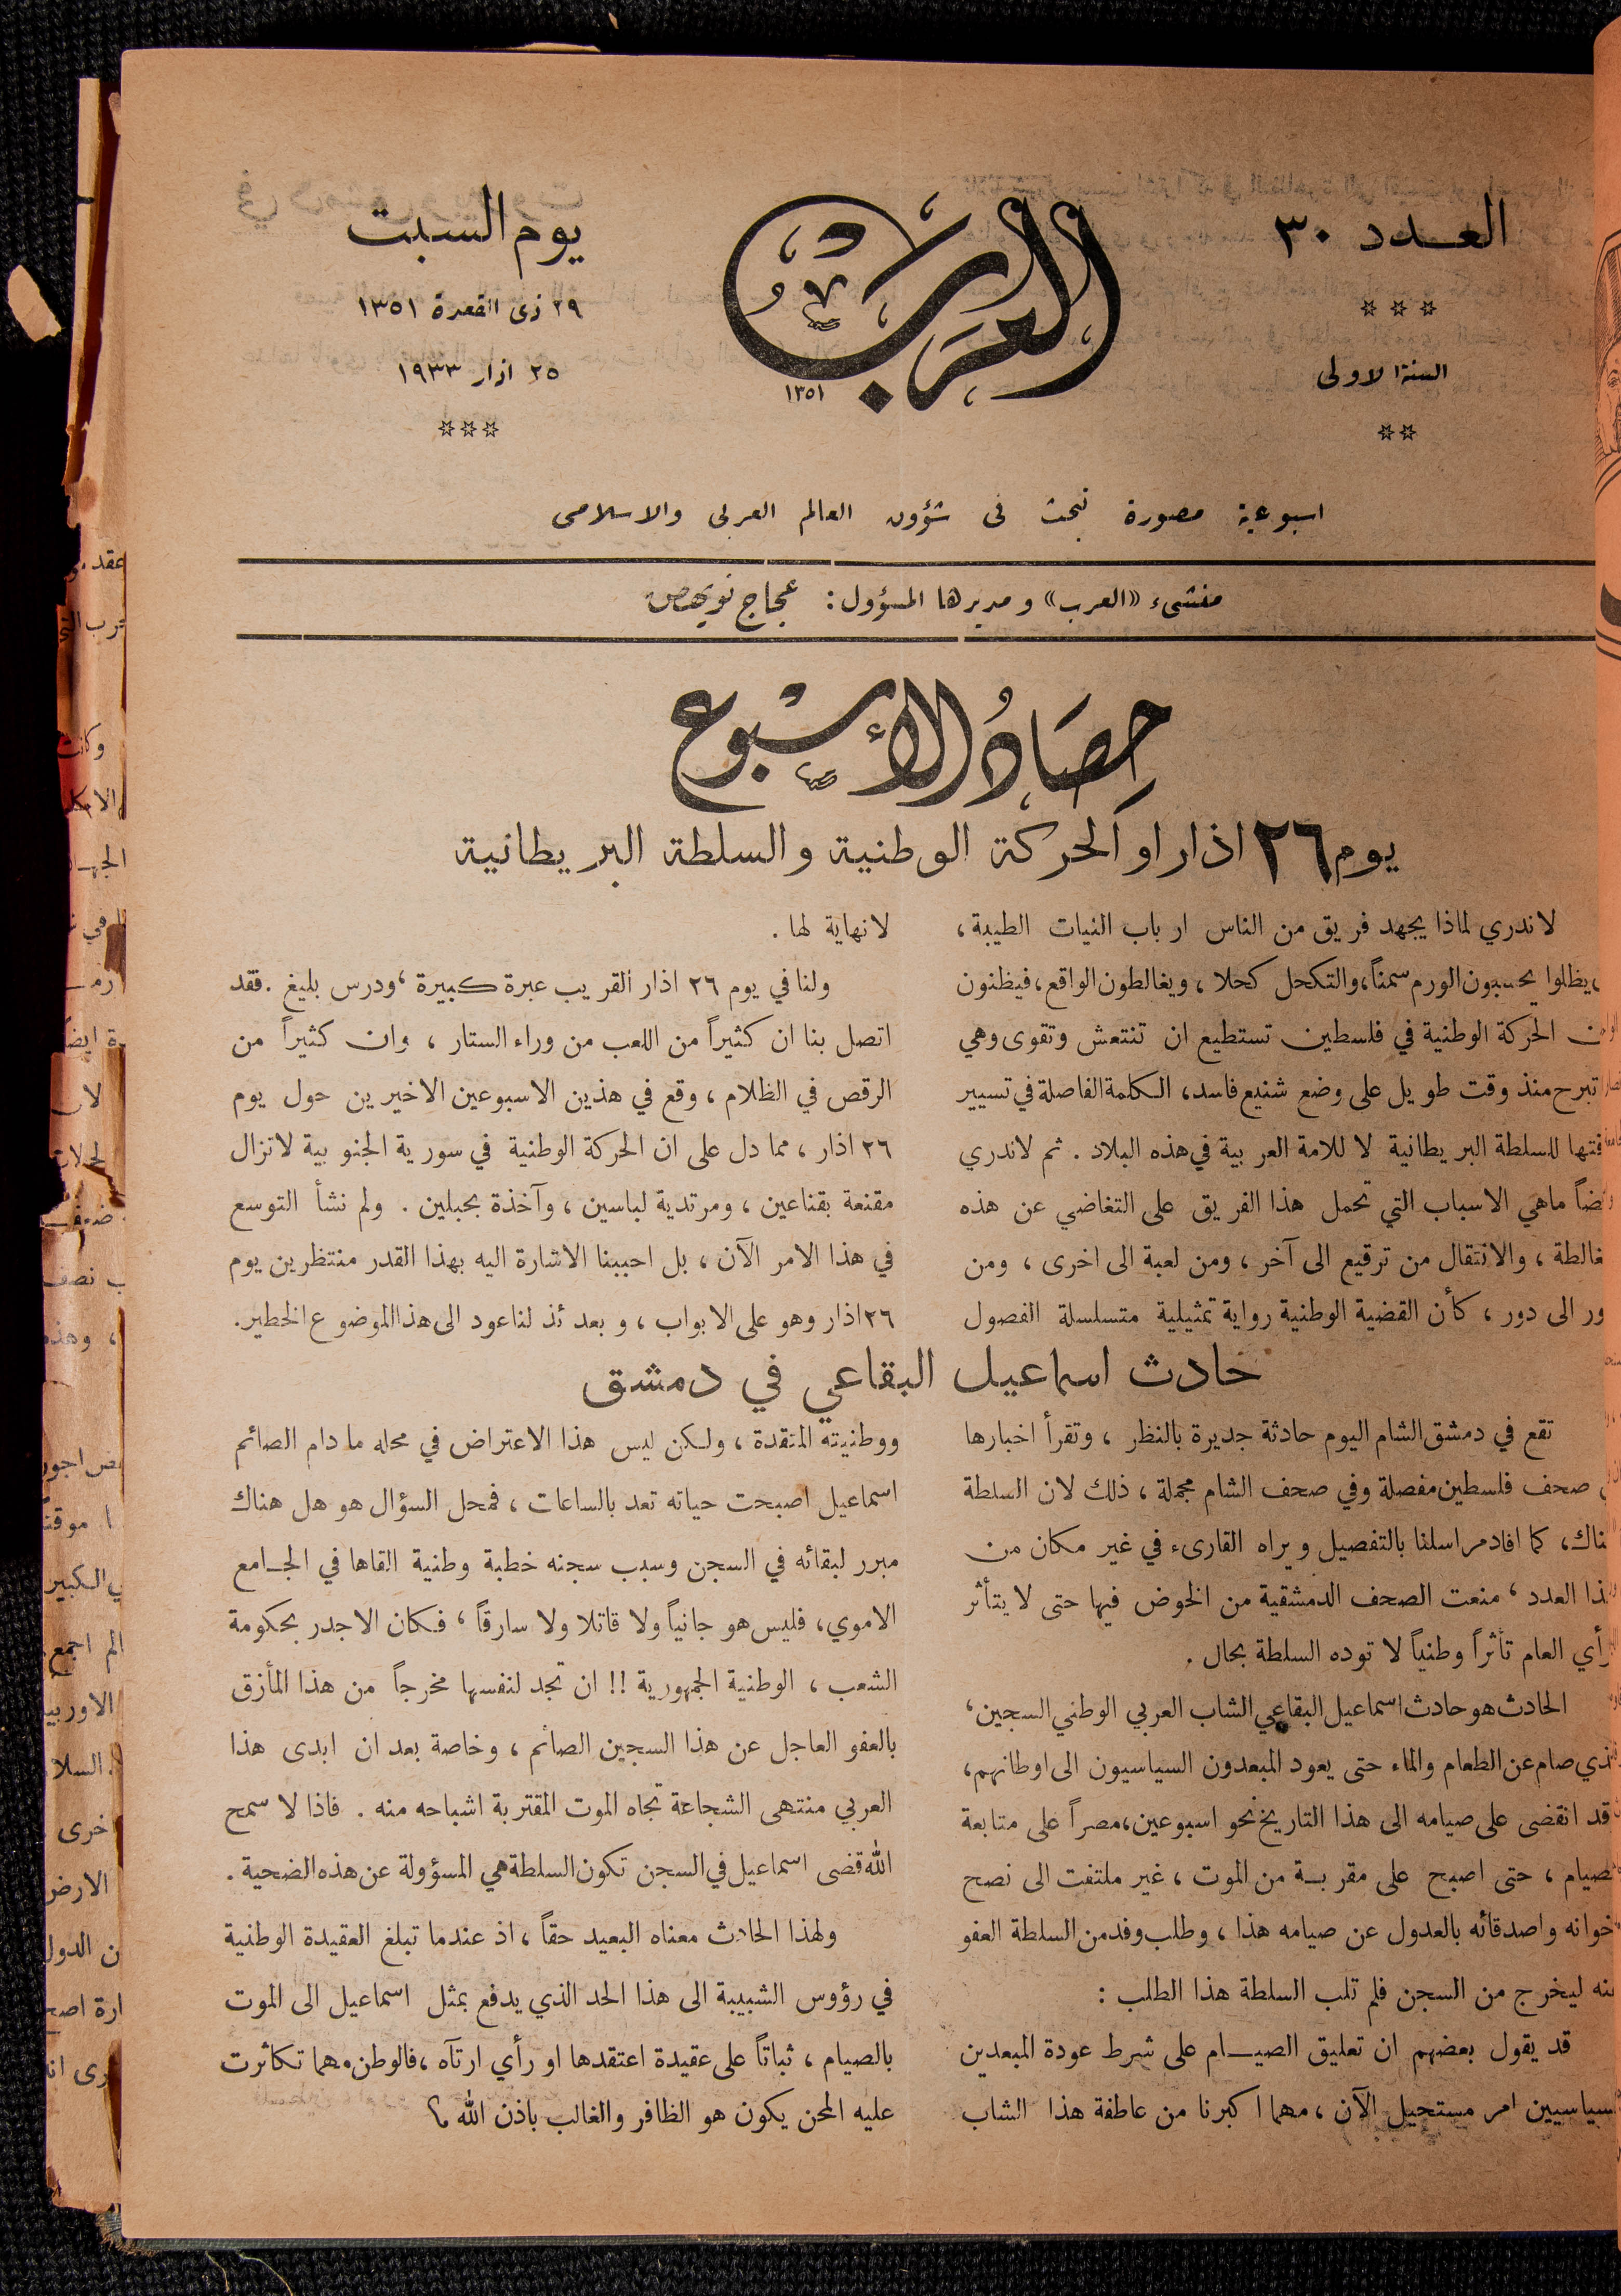 العدد ٣٠
السنة الاولى
العرب
١٣٥١
يوم السبت
٢٩ ذي القعدة ١٣٥١
٢٥ اذار ١٩٣٣
اسبوعية مصورة تبحث في شؤون العالم العربي والاسلامي
منشىء «العرب» ومديرها المسؤول: عجاج نويهض
حِصَادُ الأُسْبُوع
يوم ٢٦ اذار او الحركة الوطنية والسلطة البريطانية
لاندري لماذا يجهد فريق من الناس ارباب النيات الطيبة،
يظلوا يحسبون الورم سمناً، والتكحل كحلا، ويغالطون الواقع، فيظنون
الحركة الوطنية في فلسطين تستطيع ان تنتعش وتقوى وهي
تبرح منذ وقت طويل على وضع شنيع فاسد، الكلمة الفاصلة في تسيير
للسلطة البريطانية لا للامة العربية في هذه البلاد. ثم لاندري
ماهي الاسباب التي تحمل هذا الفريق على التغاضي عن هذه
والانتقال من ترقيع الى آخر، ومن لعبة الى اخرى، ومن
الى دور، كأن القضية الوطنية رواية تمثيلية متسلسلة الفصول
لانهاية لها.
ولنا في يوم ٢٦ اذار القريب عبرة كبيرة، ودرس بليغ. فقد
اتصل بنا ان كثيراً من اللعب من وراء الستار، وان كثيراً من
الرقص في الظلام، وقع في هذين الاسبوعين الاخيرين حول يوم
٢٦ اذار، مما دل على ان الحركة الوطنية في سورية الجنوبية لاتزال
مقنعة بقناعين، ومرتدية لباسين، وآخذة بحبلين. ولم نشأ التوسع
في هذا الامر الآن، بل احببنا الاشارة اليه بهذا القدر منتظرين يوم
٢٦ اذار وهو على الابواب، وبعد ئذ لنا عود الى هذا الموضوع الخطير.
حادث اسماعيل البقاعي في دمشق
تقع في دمشق الشام اليوم حادثة جديرة بالنظر، وتقرأ اخبارها
صحف فلسطين مفصلة وفي صحف الشام مجملة، ذلك لان السلطة
كما افاد مراسلنا بالتفصيل ويراه القارىء في غير مكان من
العدد، منعت الصحف الدمشقية من الخوض فيها حتى لا يتأثر
العام تأثراً وطنياً لا توده السلطة بحال.
الحادث هو حادث اسماعيل البقاعي الشاب العربي الوطني السجين،
صام عن الطعام والماء حتى يعود المبعدون السياسيون الى اوطانهم،
قد انقضى على صيامه الى هذا التاريخ نحو اسبوعين، مصراً على متابعة
حتى اصبح على مقربة من الموت، غير ملتفت الى نصح
واصدقائه بالعدول عن صيامه هذا، وطلب وفد من السلطة العفو
ليخرج من السجن فلم تلب السلطة هذا الطلب:
قد يقول بعضهم ان تعليق الصيام على شرط عودة المبعدين
امر مستحيل الآن، مهما اكبرنا من عاطفة هذا الشاب
ووطنيته المتقدة، ولكن ليس هذا الاعتراض في محله ما دام الصائم
اسماعيل اصبحت حياته تعد بالساعات، فمحل السؤال هو هل هناك
مبرر لبقائه في السجن وسبب سجنه خطبة وطنية القاها في الجامع
الاموي، فليس هو جانياً ولا قاتلا ولا سارقاً، فكان الاجدر بحكومة
الشعب، الوطنية الجمهورية !! ان تجد لنفسها مخرجاً من هذا المأزق
بالعفو العاجل عن هذا السجين الصائم، وخاصة بعد ان ابدى هذا
العربي منتهى الشجاعة تجاه الموت المقتربة اشباحه منه. فاذا لا سمح
الله قضى اسماعيل في السجن تكون السلطة هي المسؤولة عن هذه الضحية.
ولهذا الحادث معناه البعيد حقاً، اذ عندما تبلغ العقيدة الوطنية
في رؤوس الشبيبة الى هذا الحد الذي يدفع بمثل اسماعيل الى الموت
بالصيام، ثباتاً على عقيدة اعتقدها او رأي ارتآه، فالوطن مهما تكاثرت
عليه المحن يكون هو الظافر والغالب باذن الله